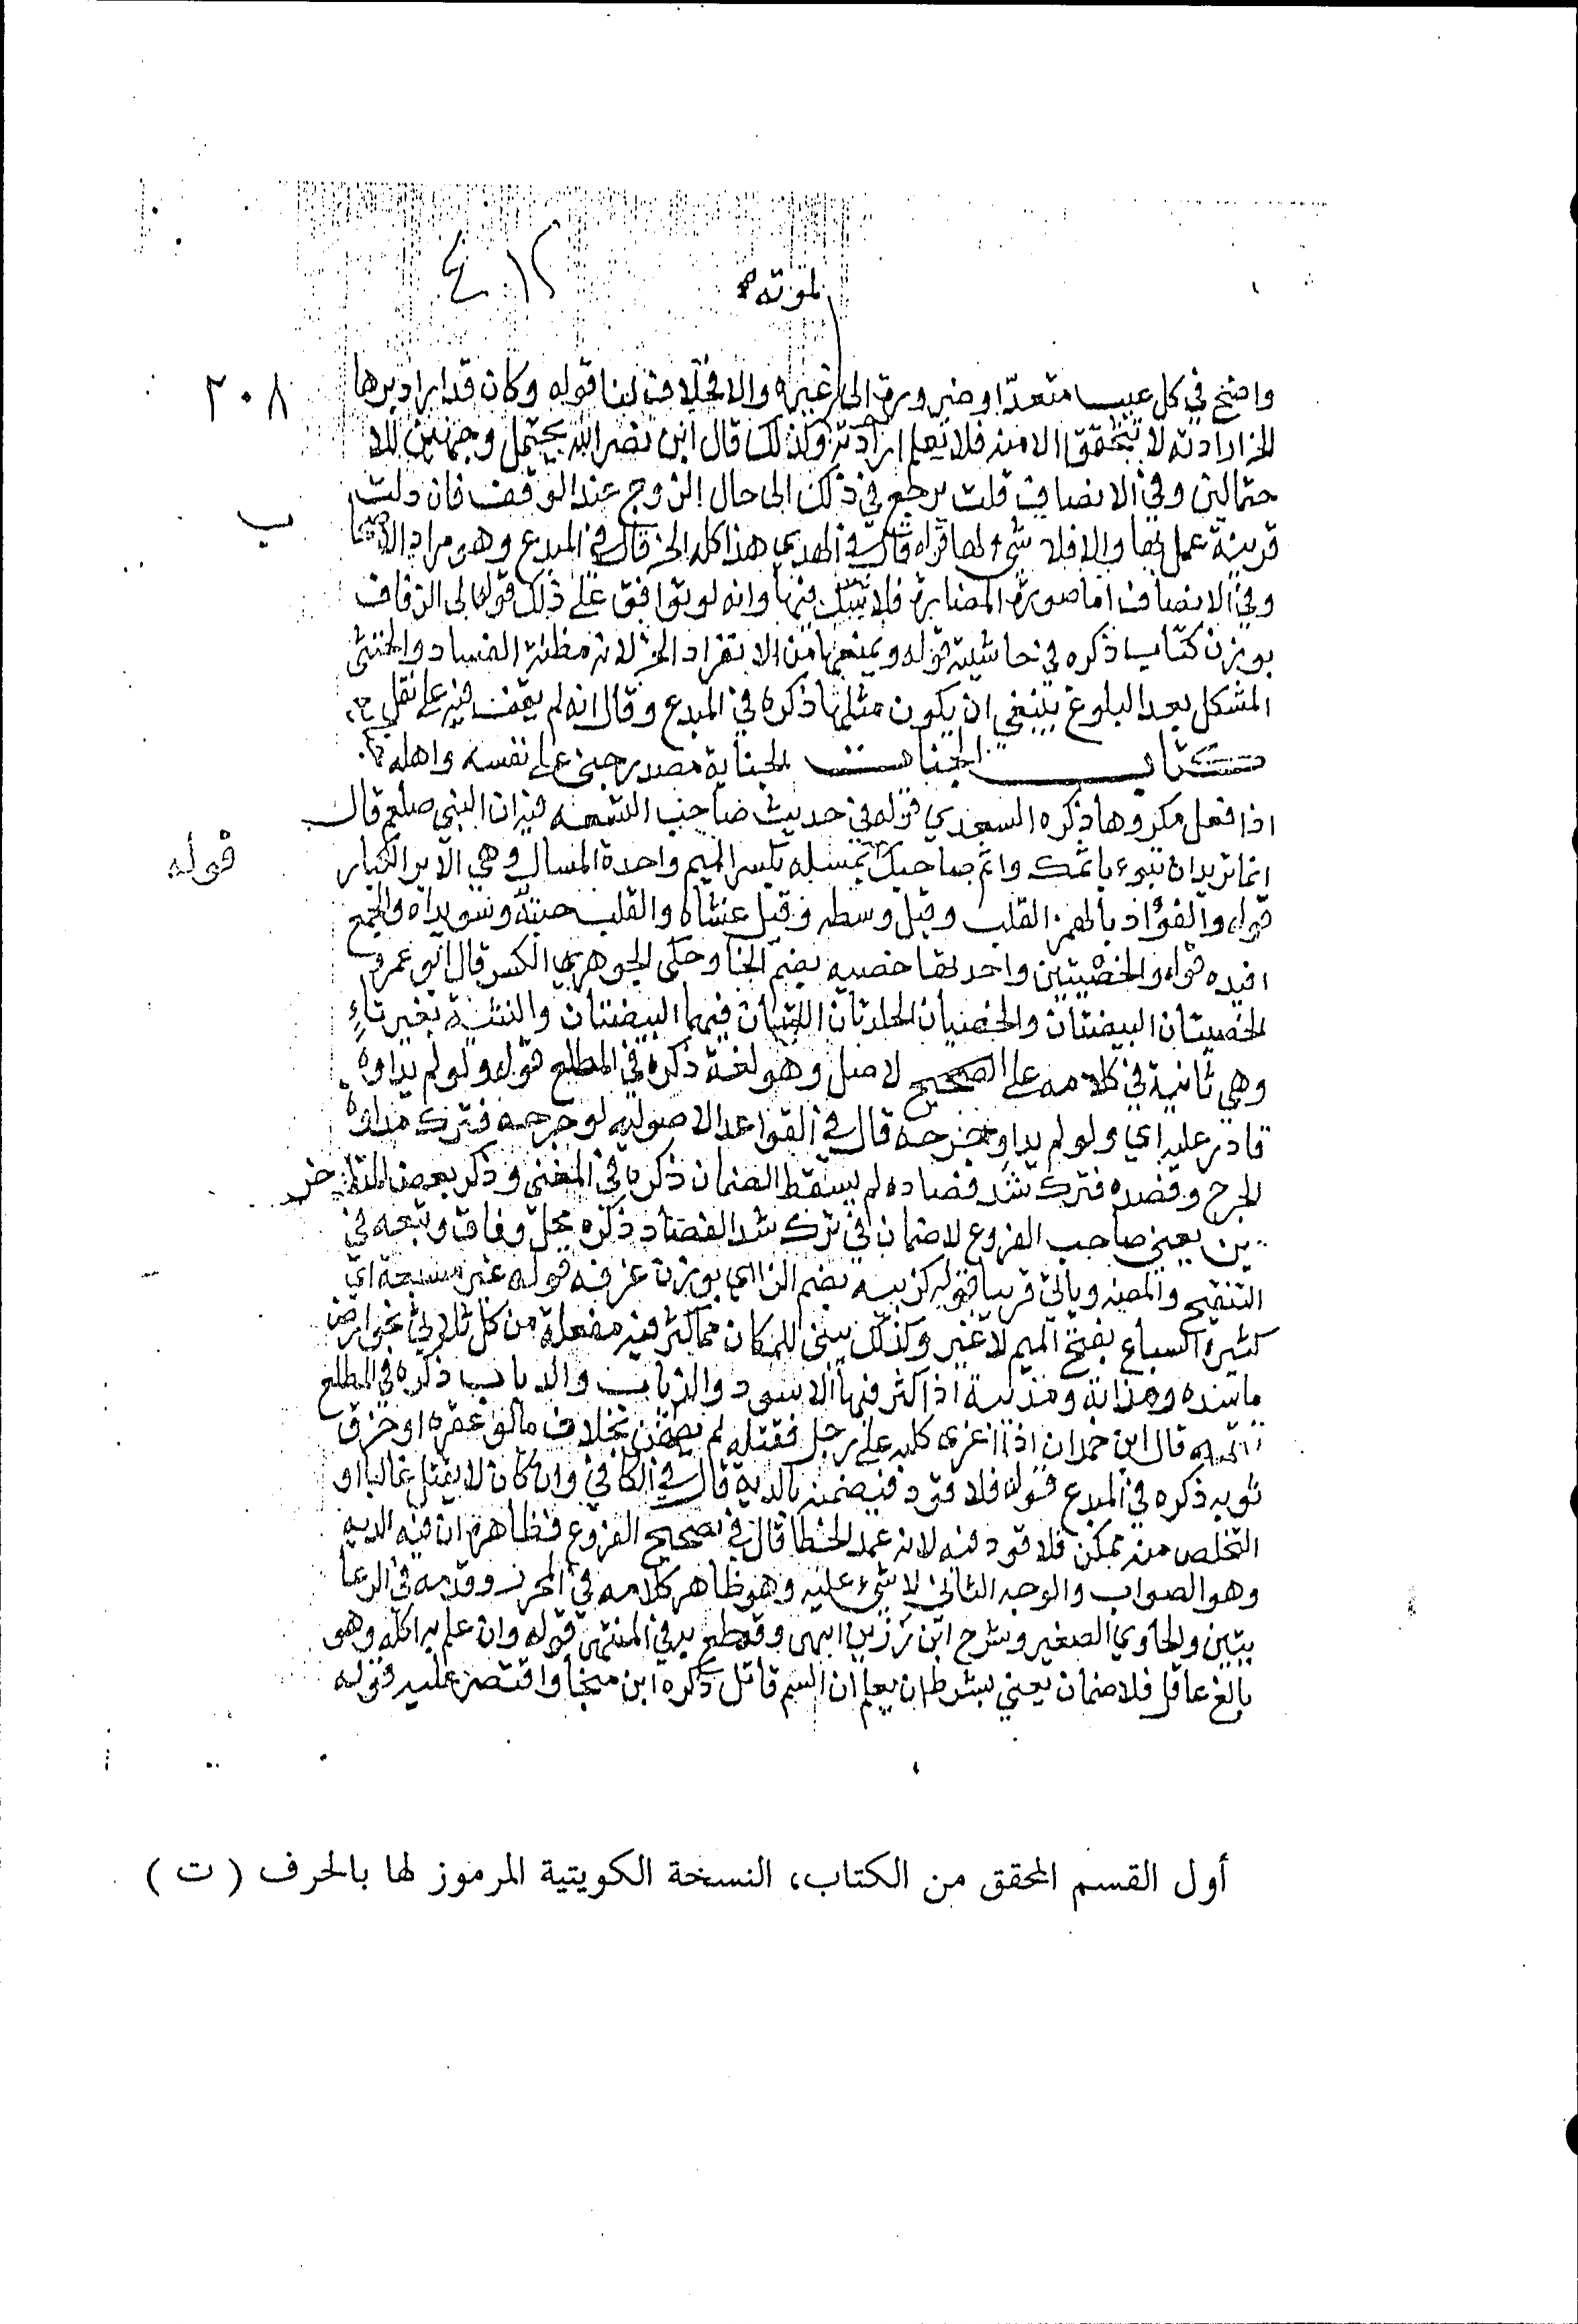 لقوته
٢٠٨
واضح في كل عيب متعد او ضرورة الى غيره والا فخلاف لنا قوله وكان قد اراد برها
الخ ارادته لا تتحقق الا منه فلا تعلم ارادته وكذلك قال ابن نصر الله يحتمل وجهين للا
حتمالين وفي الانصاف قلت يرجع في ذلك الى حال الزوج عند الوقف فان دلت
قرينة عمل بها والا فلا شيء لها قال في الهدي هذا كله الخ قال في المبدع وهو مراد
ب
وفي الانصاف اما صورة فلا شك فيها وانه لو توافق على ذلك قوله الى الزفاف
بوزن كتاب ذكره في حاشيته قوله ويمنعها من الانفراد الخ لانه مظنة الفساد والخنثى
المشكل بعد البلوغ ينبغي ان يكون مثلها ذكره في المبدع وقال انه لم يقف فيه على نقل
كتاب الجنايات الجناية مصدر جنى على نفسه واهله
اذا فعل مكروها ذكره السعدي قوله في حديث صاحب النسعه فيه ان النبي صلعم قال
اما تريد ان تبوء باثمك واثم صاحبك بمسله بكسر الميم واحدة المسال وهي الابر الكبار
قوله
قوله والفؤاد بالهمز القلب وقيل وسطه وقيل غشاؤه والقلب حبته وسويداه والجمع
افيده قوله والخصيتين واحدتها خصيه بضم الخا وحكى الجوهري الكسر قال ابو عمرو
الخصيتان البيضتان والخصيان الجلدتان اللتان فيهما البيضتان والتثنية بغير تاء
وهي ثانية في كلامه على الصحيح لاصل وهو لغة ذكره في المطلع قوله ولو لم يداوه
قادر عليه اي ولو لم يداو جرحه قال في القواعد الاصوليه لو جرحه فترك مداواة
الجرح وفصده فترك شد فصاده لم يسقط الضمان ذكره في المغني وذكر بعض المتأخر
ين يعني صاحب الفروع لا ضمان في ترك شد الفصاد ذكره محل وفاق وتبعه في
التنقيح والمص وياتي قريبا قوله كزبيه بضم الزاي بوزن غرفه قوله غير مسبعة اي
كثيرة السباع بفتح الميم لا غير وكذلك يبنى للمكان مما كثر فيه مفعلة من كل ثلاثي نحو ارض
ماسده ومذابة ومذببة اذا كثر فيها الاسود والذياب والدباب ذكره في المطلع
تتمه قال ابن حمدان اذا اغرى كلبه على رجل فقتله لم يضمن بخلاف ما لو عقره او خرق
ثوبه ذكره في المبدع قوله فلا قود فيضمنه بالدية قال في الكافي وان كان لا يقتل غالبا او
التخلص منه ممكن فلا قود فيه لانه عمد الخطا قال في تصحيح الفروع فظاهره ان فيه الديه
وهو الصواب والوجه الثاني لا شيء عليه وهو ظاهر كلامه في المحرر وقدمه في الرعا
يتين والحاوي الصغير وشرح ابن رزين انتهى وقطع به في المنتهى قوله وان علم به اكله وهو
بالغ عاقل فلا ضمان يعني بشرط ان يعلم ان السم قاتل ذكره ابن منجا واقتصر عليه قوله
أول القسم المحقق من الكتاب، النسخة الكويتية المرموز لها بالحرف ( ت )